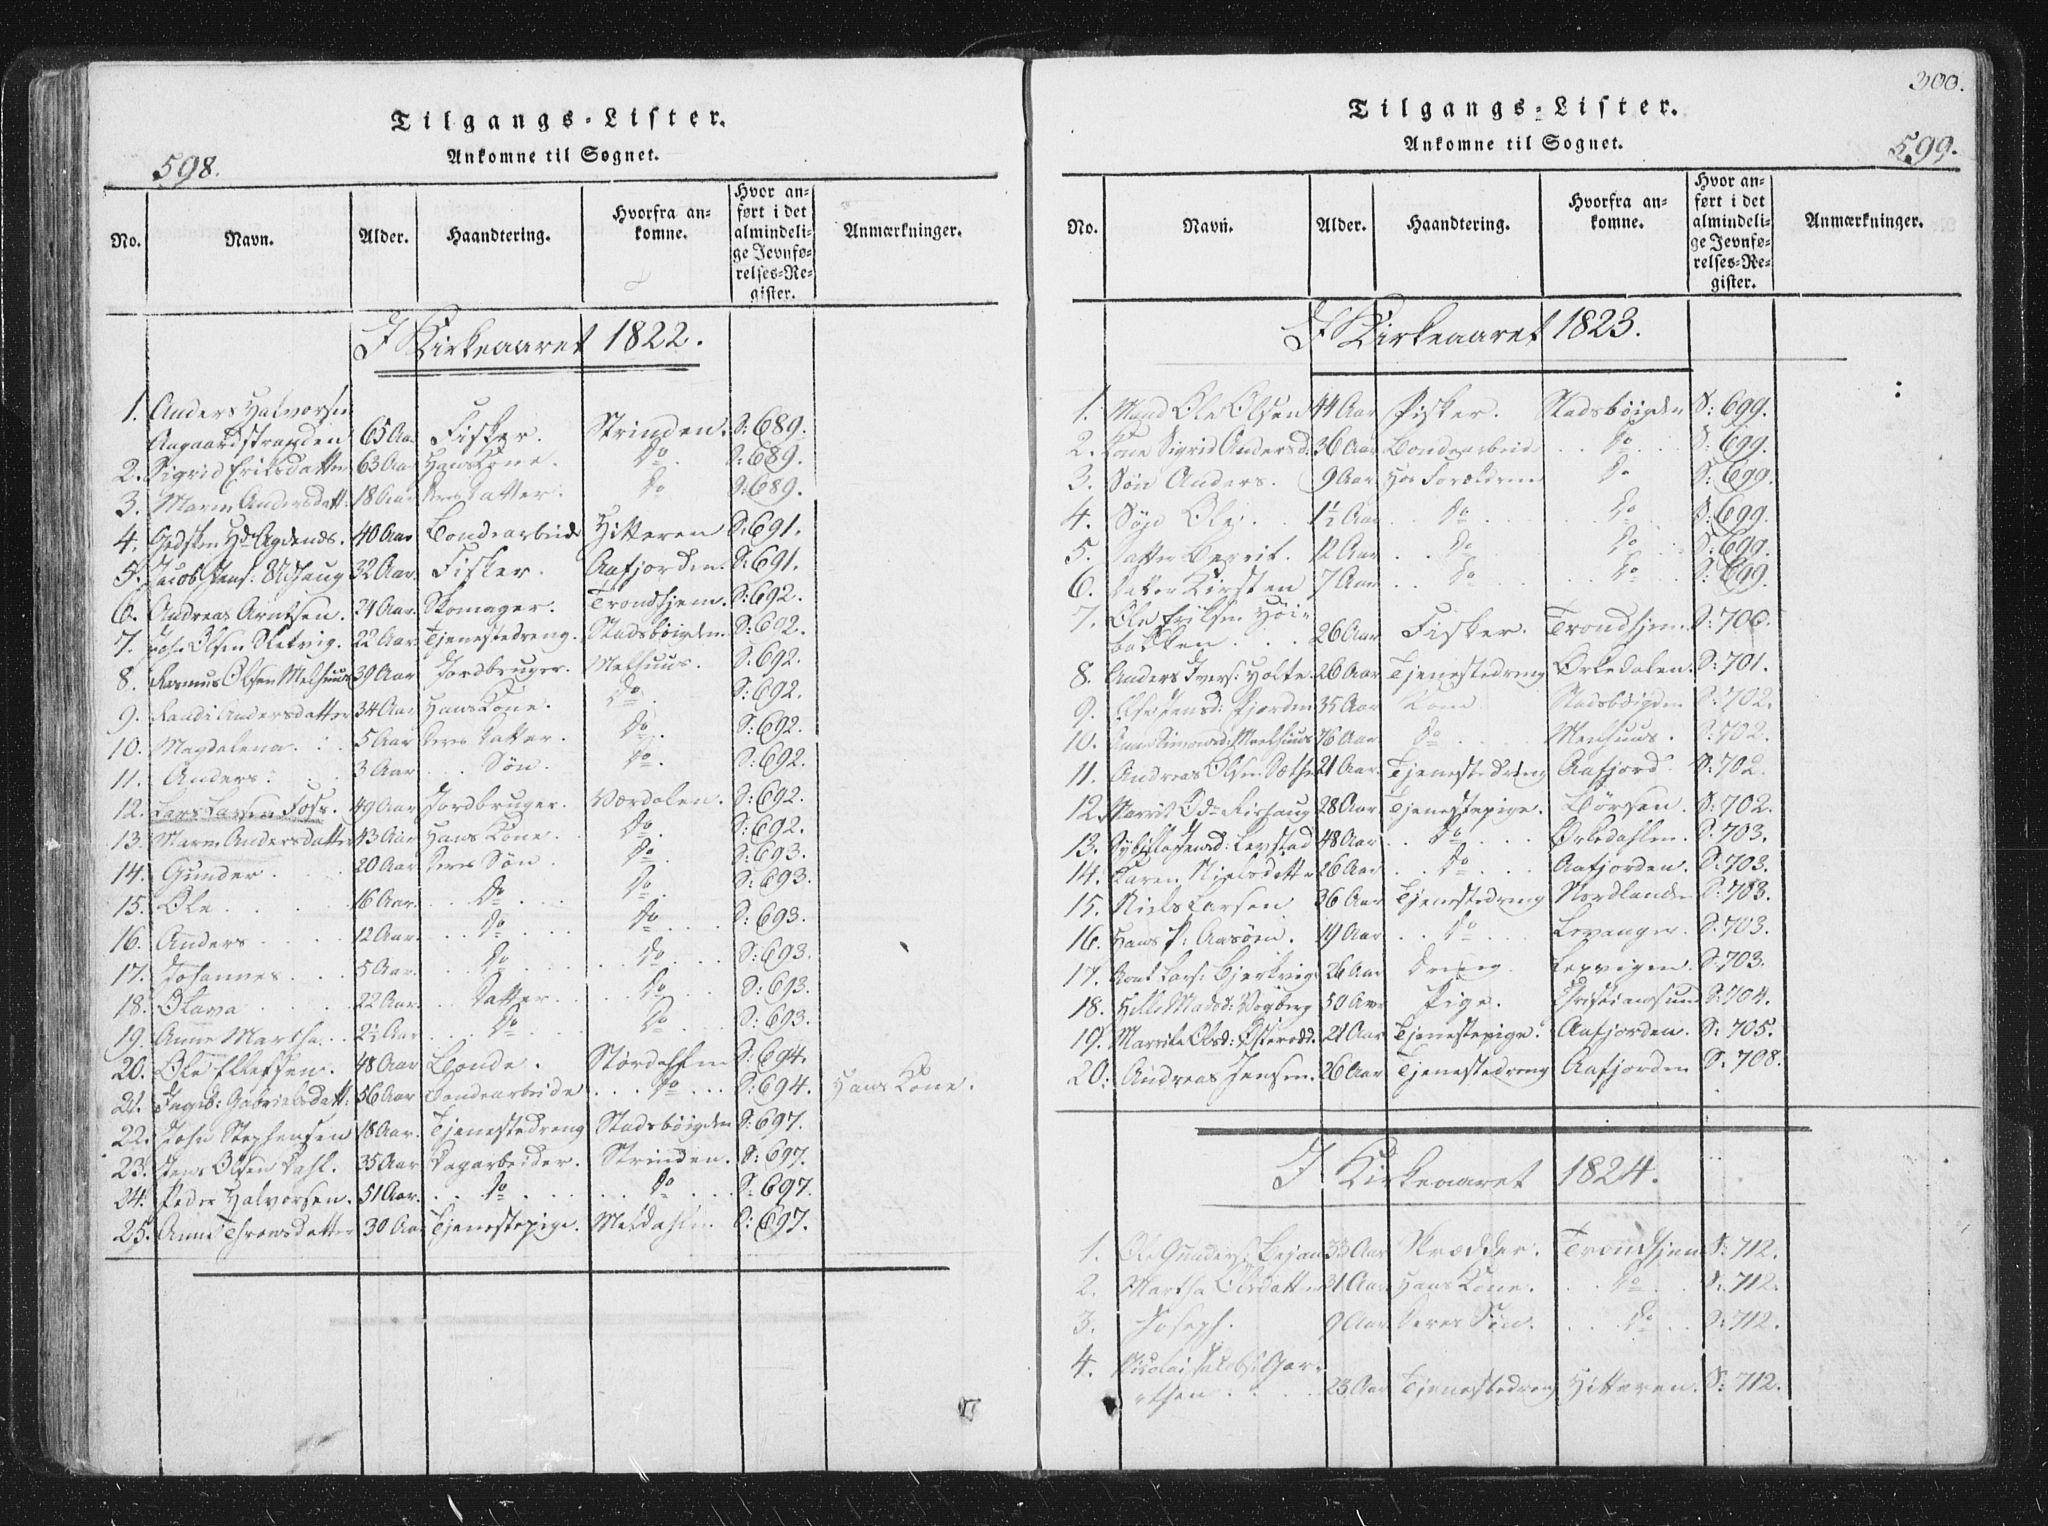 598.
Tilgangs-Lister.
Ankomne til Sognet.
No. Navn. Alder. Haandtering. Hvorfra ankomne. Hvor anført i det almindelige Jevnførelses-Register. Anmærkninger.
I Kirkeaaret 1822.
1. Anders Halvorsen
Aagaardstranden 65 Aar Fisker. Strinden. S: 689.
2. Sigrid Eriksdatter 63 Aar Hans Kone. Do. S: 689.
3. Maren Andersdatt: 18 Aar Deres Datter. Do S: 689.
4. Hd Agdenæs. 40 Aar Bondearbeide Hitteren S: 691.
5. Jacob Jens: Udhaug 32 Aar. Fisker. Aafjorden. S: 691.
6. Andreas Arntsen. 24 Aar. Skomager. Trondhjem. S: 692.
7. Joh. Olsen 22 Aar. Tjenestedreng. Stadsbøigden. S: 692.
8. Rasmus Olsen Melhuus 39 Aar Jordbruger. Melhuus. S: 692.
9. Randi Andersdatter 34 Aar Hans Kone. Do. S: 692.
10. Magdalena. 5 Aar Deres Datter. Do. S: 692.
11. Anders: 3 Aar Søn. Do. S: 692.
12. Lars Larsen Foss. 49 Aar Jordbruger. Værdalen. S: 692.
13. Maren Andersdatter 43 Aar Hans Kone. Do. S: 692.
14. Gunder 20 Aar Deres Søn. Do. S: 693.
15. Ole 16 Aar. Do Do. S: 693.
16. Anders 12 Aar. Do Do S: 693.
17. Johannes 5 Aar. Do Do S: 693.
18. Olava 22 Aar. Datter Do S: 693.
19. Anne Martha 2½ Aar Do Do S: 693.
20. Ole Ellefsen. 48 Aar Bonde. Størdahlen S: 694.
21. Ingeb: Gabrielsdatt: 56 Aar Bondearbeide Do S: 694. Hans Kone.
22. John Stephensen 18 Aar. Tjenestedreng Stadsbøigden S: 697.
23. Jens Olsen Dahl. 35 Aar Dagarbeider. Strinden. S: 697.
24. Peder Halvorsen. 51 Aar. Do Do S: 697.
25. Anne Thronsdatter 30 Aar Tjenestepige. Meldahlen. S: 697.
300.
599.
Tilgangs-Lister.
Ankomne til Sognet.
No. Navn. Alder. Haandtering. Hvorfra ankomne. Hvor anført i det almindelige Jevnførelses-Register. Anmærkninger.
I Kirkeaaret 1823.
1. Mand Ole Olsen 44 Aar Fisker. Stadsbøigden S: 699.
2. Kone Sigrid Andersd. 36 Aar Bondearbeid Do S: 699.
3. Søn Anders. 9 Aar Hos Forældrene Do S: 699.
4. Søn Ole. 1½ Aar Do Do S: 699.
5. Datter Berit. 12 Aar Do Do S: 699.
6. Datter Kirsten 7 Aar Do Do S: 699.
7. Ole Eriksen Høi-
bakken 26 Aar Fisker. Trondhjem S: 700.
8. Anders Ivers: Holte. 26 Aar Tjenestedreng Orkedalen. S: 701.
9. Jensd: Fjorden 35 Aar Kone Stadsbøigden S: 702.
10. Melhuus 76 Aar Do Melhuus. S: 702.
11. Andreas Olsen 21 Aar. Tjenestedreng Aafjord. S: 702.
12. Marrit Od: Rishaug 28 Aar Tjenestepige. Børsen. S: 702.
13. Jensd: Levstad 48 Aar Do Orkedahlen. S: 703.
14. Karen Nielsdatter 26 Aar Do Aafjorden. S: 703.
15. Niels Larsen 36 Aar Tjenestedreng Nordlandene S: 703.
16. Hans P: Aasøen. 19 Aar Do Levanger. S: 703.
17. Lars: Bjerkvig 26 Aar Dreng. Lexvigen. S: 703.
18. Madsd: 50 Aar Pige. Christiansund S: 704.
19. Marrite Olsd: 21 Aar Tjenestepige. Aafjorden. S: 705.
20. Andreas Jensen. 26 Aar Tjenestedreng Aafjorden S: 708.
I Kirkeaaret 1824.
1. Ole Gunders: Bejan 33 Aar Skrædder. Trondhjem S: 712.
2. Martha Olsdatter 31 Aar Hans Kone. Do S: 712.
3. Joseph. 9 Aar Deres Søn. Do S: 712.
4. Nicolai Jacobs: Gar-
etsen 23 Aar Tjenestedreng Hitteren. S: 712.